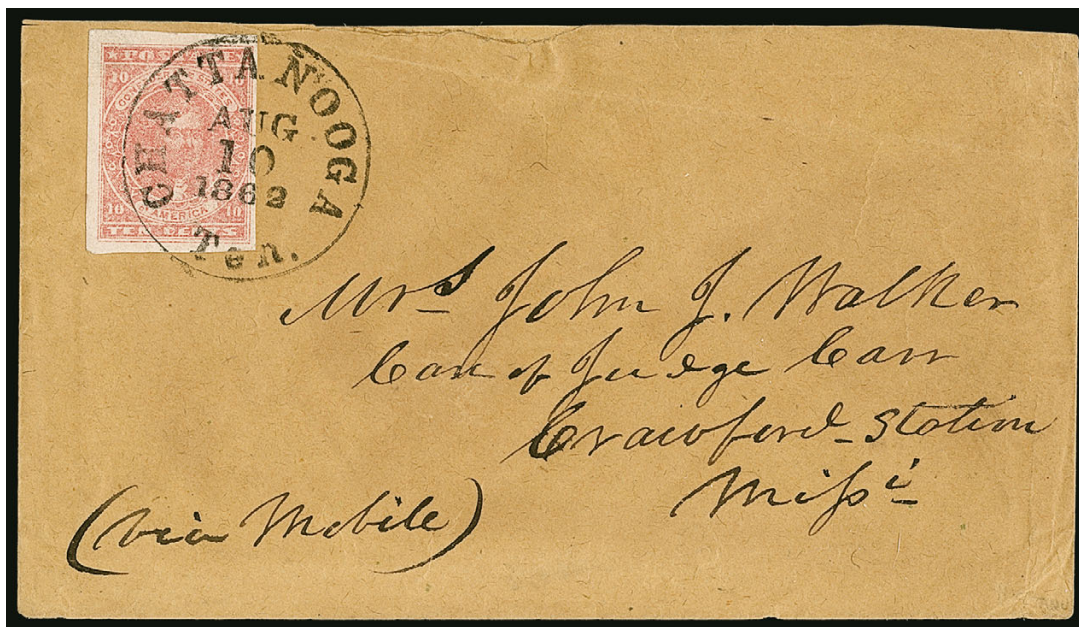 POSTAGE
10
CONFEDERATE STATES
OF AMERICA
10 10
TEN CENTS
CHATTANOOGA
AUG
10
1862
Ten.
Mrs John J. Walker
Care of Judge Carr
Crawford Station
Missi
(via Mobile)